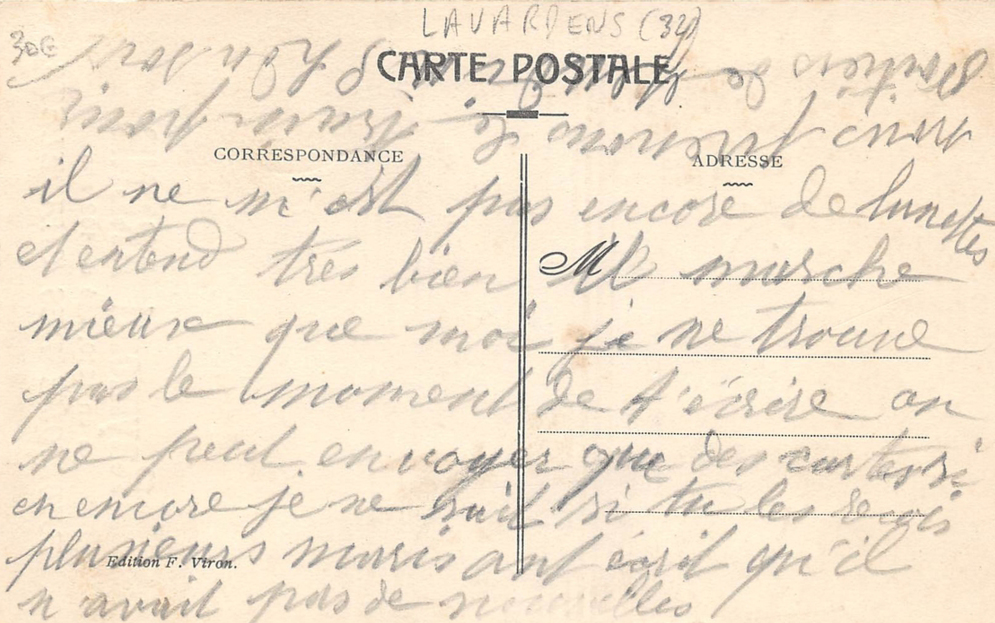 30€
LAVARDENS (32)
CARTE POSTALE
CORRESPONDANCE
ADRESSE
il ne m'est pas encore de lunettes
et entend tres bien Il marche
mieux que moi je ne trouve
pas le moment de t'écrire on
ne peut envoyer que des cartes si
en encore je ne sait si tu les reçois
plusieurs maris ont écrit qu'il
n'avait pas de nouvelles
M
Edition F. Viron.
nous prenons le train pour